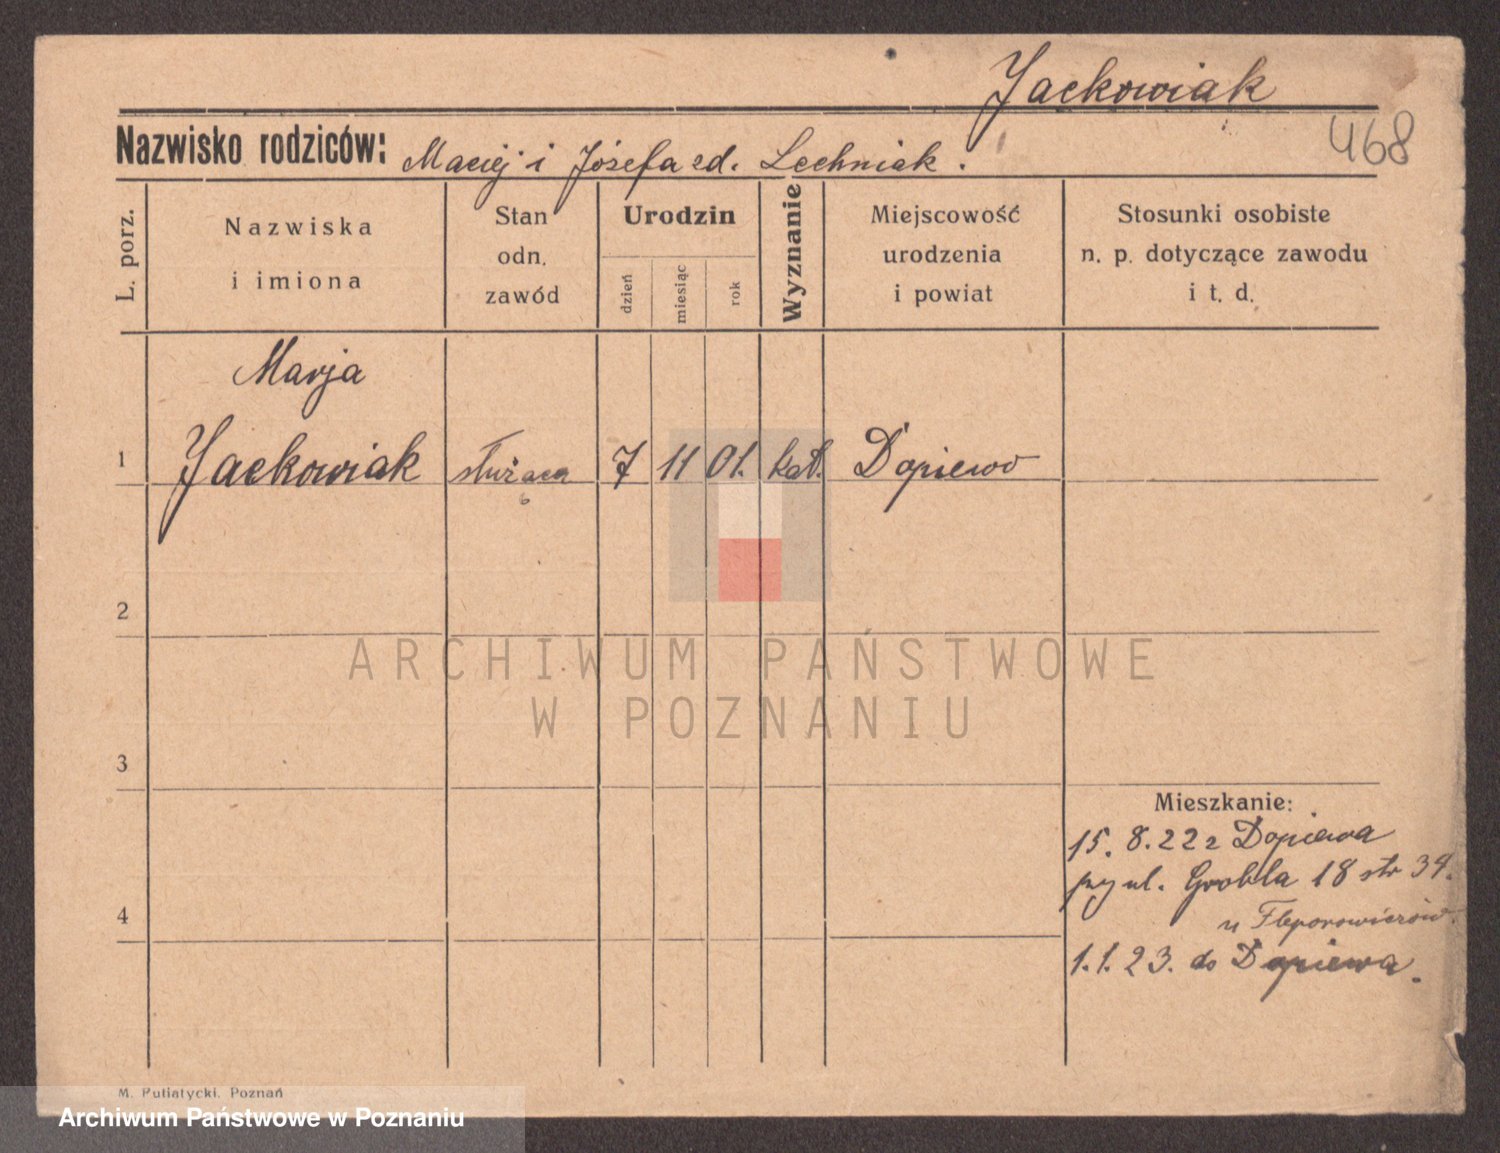 Jackowiak
468
Nazwisko rodziców: Maciej i Józefa zd. Lechniak.
L. porz.
Nazwiska
i imiona
Stan
odn.
zawód
Urodzin
dzień
miesiąc
rok
Wyznanie
Miejscowość
urodzenia
i powiat
Stosunki osobiste
n. p. dotyczące zawodu
i t. d.
Marja
1 Jackowiak służąca 7 11 01. kat. Dopiewo
2
ARCHIWUM PAŃSTWOWE
W POZNANIU
3
Mieszkanie:
15. 8.22 z Dopiewa
przy ul. Grobla 18 str 34.
4
u
1.1.23. do Dopiewa.
M. Putiatycki. Poznań
Archiwum Państwowe w Poznaniu